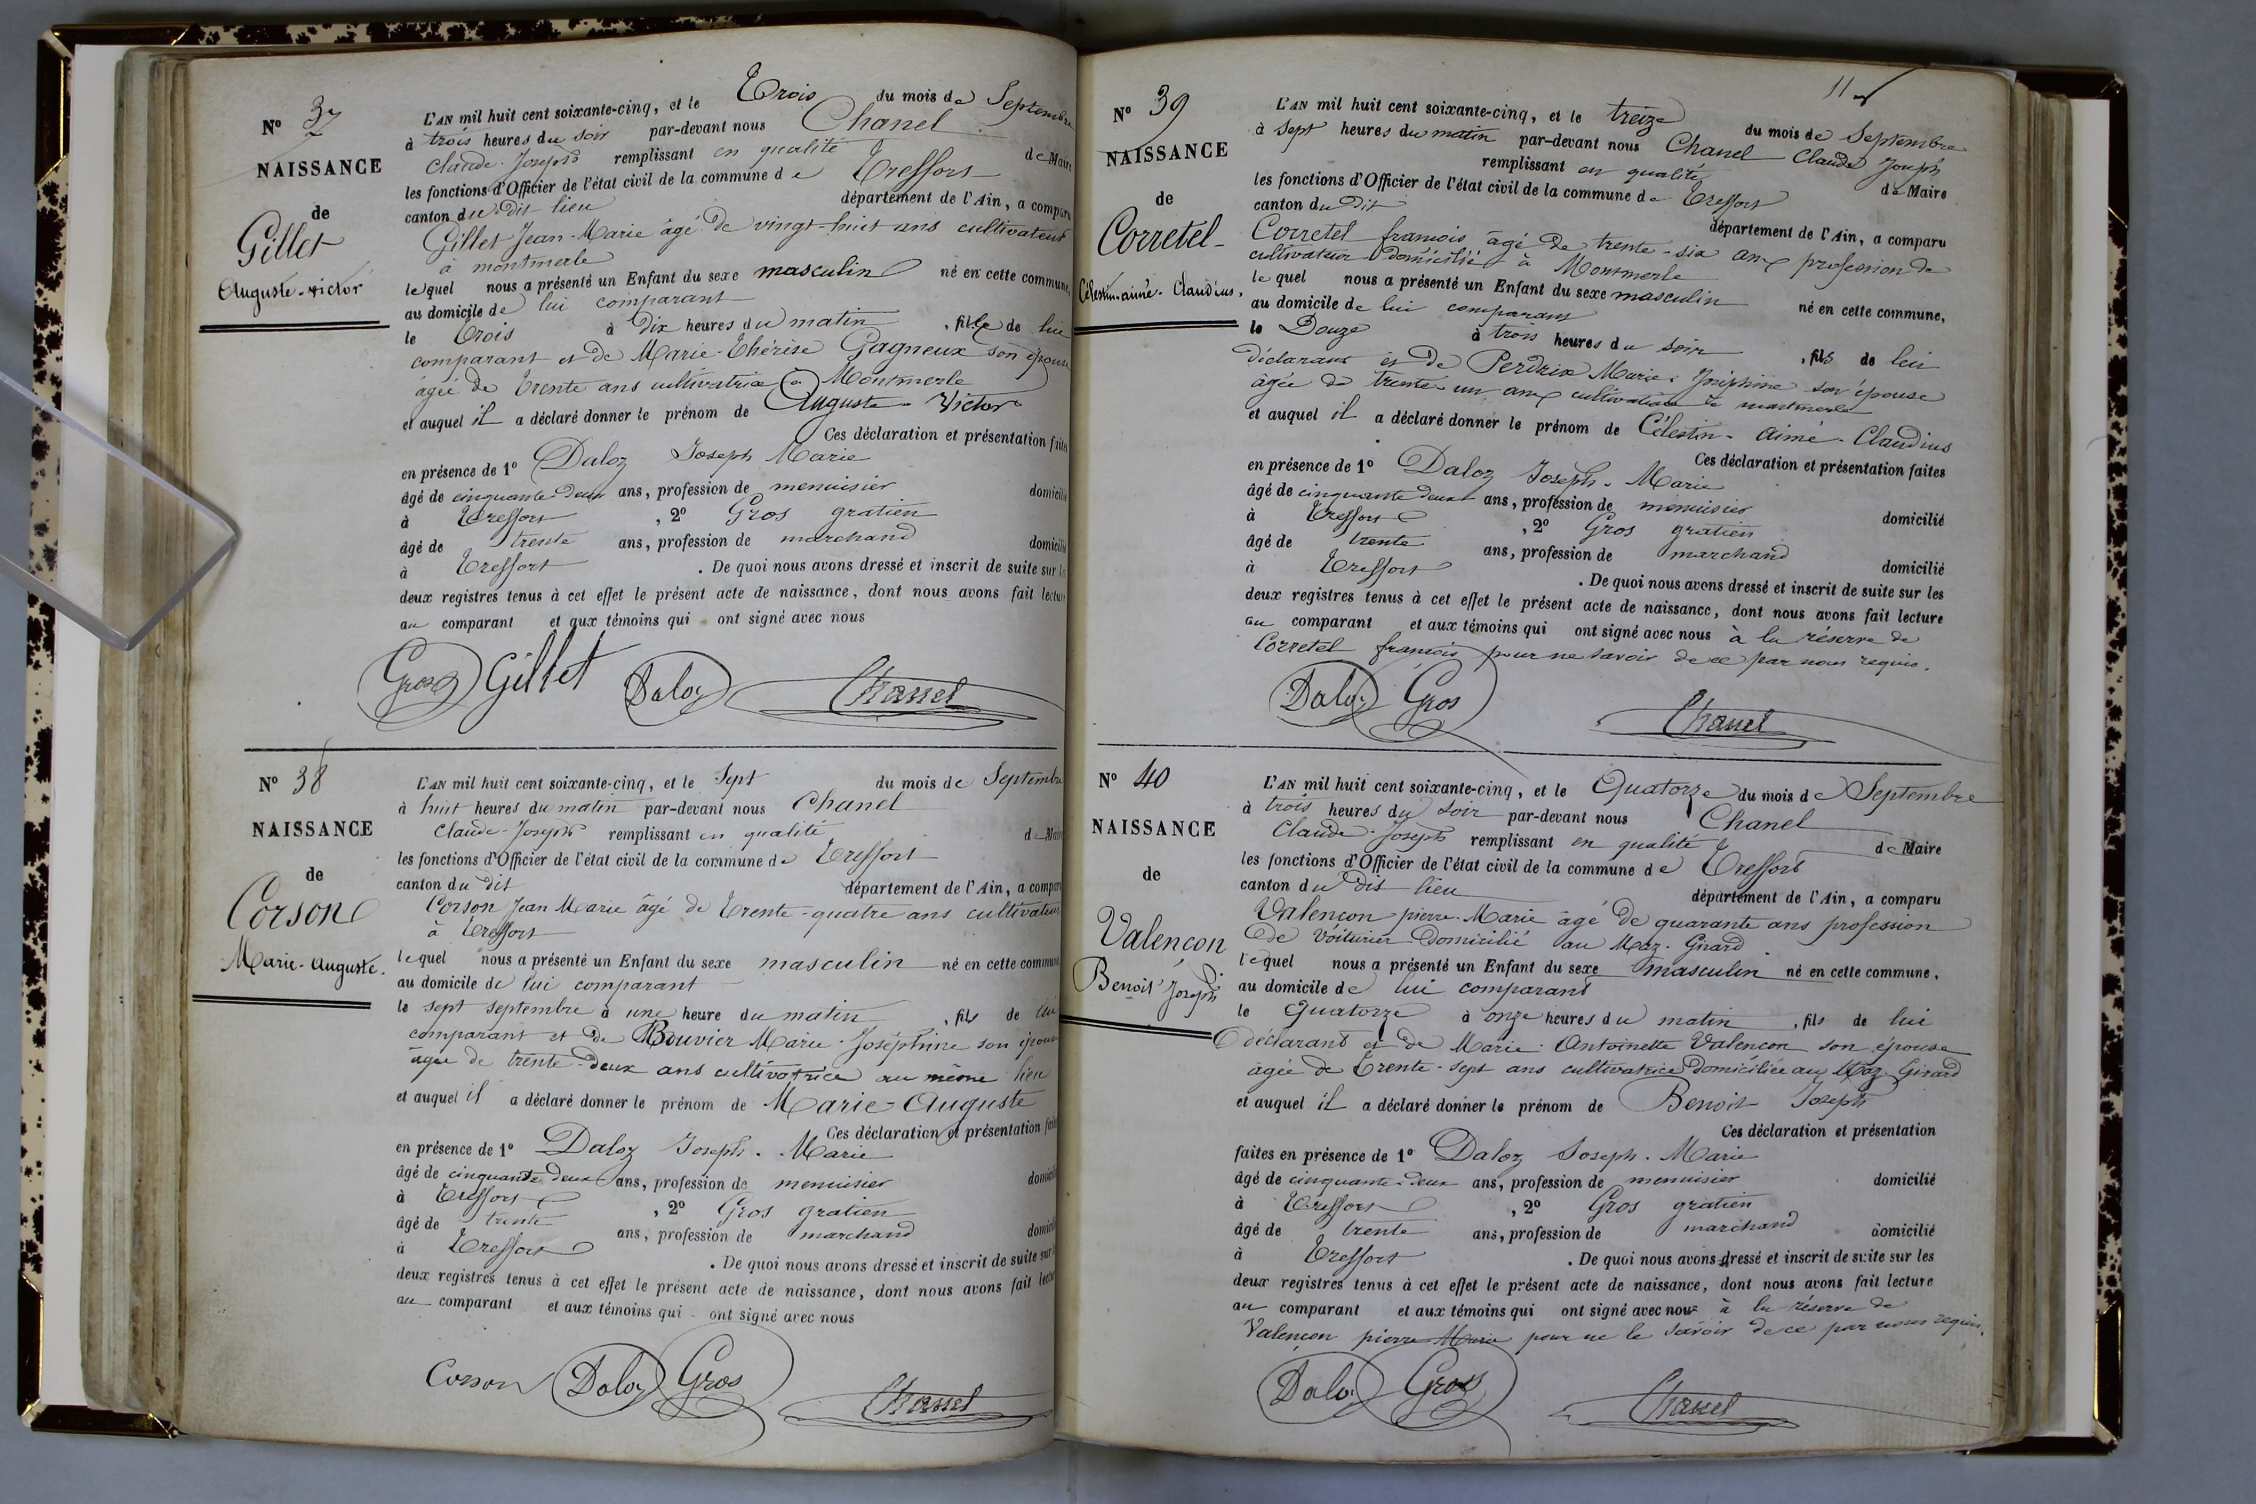 N° 37
NAISSANCE
de
Gillet
Auguste-victor
L'AN mil huit cent soixante-cinq, et le Trois du mois de Septembre
à trois heures du soir par-devant nous Chanel
Claude-Joseph remplissant en qualité de Maire
les fonctions d'Officier de l'état civil de la commune de Treffort
canton du dit lieu département de l'Ain, a comparu
Gillet Jean-Marie âgé de vingt-huit ans cultivateur
à montmerle
lequel nous a présenté un Enfant du sexe masculin né en cette commune,
au domicile de lui comparant
le trois à Dix heures du matin, fils de lui
comparant et de Marie-Thérèse Gagneux son épouse
âgée de trente ans cultivatrice à Montmerle
et auquel il a déclaré donner le prénom de Auguste-Victor
Ces déclaration et présentation faites
en présence de 1° Daloz Joseph Marie
âgé de cinquante-deux ans, profession de menuisier domicilié
à Treffort, 2° Gros gratien
âgé de trente ans, profession de marchand domicilié
à Treffort. De quoi nous avons dressé et inscrit de suite sur les
deux registres tenus à cet effet le présent acte de naissance, dont nous avons fait lecture
au comparant et aux témoins qui ont signé avec nous
Gros Gillet Daloz Chanel
N° 38
NAISSANCE
de
Corson
Marie-Auguste.
L'AN mil huit cent soixante-cinq, et le Sept du mois de Septembre
à huit heures du matin par-devant nous Chanel
Claude-Joseph remplissant en qualité de Maire
les fonctions d'Officier de l'état civil de la commune de Treffort
canton du dit département de l'Ain, a comparu
Corson Jean Marie âgé de Trente-quatre ans cultivateur
à Treffort
lequel nous a présenté un Enfant du sexe masculin né en cette commune
au domicile de lui comparant
le sept septembre à une heure du matin, fils de lui
comparant et de Bouvier Marie-Joséphine son épouse
âgée de trente-deux ans cultivatrice au même lieu
et auquel il a déclaré donner le prénom de Marie-Auguste
Ces déclaration et présentation faites
en présence de 1° Daloz Joseph. Marie
âgé de cinquante-deux ans, profession de menuisier domicilié
à Treffort, 2° Gros gratien
âgé de trente ans, profession de marchand domicilié
à Treffort. De quoi nous avons dressé et inscrit de suite sur les
deux registres tenus à cet effet le présent acte de naissance, dont nous avons fait lecture
au comparant et aux témoins qui ont signé avec nous
Corson Daloz Gros Chanel
11
N° 39
NAISSANCE
de
Corretel
Célestin-aimé-Claudius.
L'AN mil huit cent soixante-cinq, et le treize du mois de Septembre
à Sept heures du matin par-devant nous Chanel Claude Joseph
remplissant en qualité de Maire
les fonctions d'Officier de l'état civil de la commune de Treffort
canton du dit département de l'Ain, a comparu
Corretel francois âgé de trente-six ans profession de
cultivateur domicilié à Montmerle
lequel nous a présenté un Enfant du sexe masculin né en cette commune,
au domicile de lui comparant
le Douze à trois heures du soir, fils de lui
déclarant et de Perdrix Marie-Joséphine son épouse
âgée de trente-un ans cultivatrice à montmerle
et auquel il a déclaré donner le prénom de Célestin-aimé-Claudius
Ces déclaration et présentation faites
en présence de 1° Daloz Joseph-Marie
âgé de cinquante deux ans, profession de menuisier domicilié
à Treffort, 2° Gros gratien
âgé de trente ans, profession de marchand domicilié
à Treffort. De quoi nous avons dressé et inscrit de suite sur les
deux registres tenus à cet effet le présent acte de naissance, dont nous avons fait lecture
au comparant et aux témoins qui ont signé avec nous à la réserve de
Corretel francois pour ne savoir de ce par nous requis.
Daloz Gros Chanel
N° 40
NAISSANCE
de
Valençon
Benoit Joseph
L'AN mil huit cent soixante-cinq, et le Quatorze du mois de Septembre
à trois heures du soir par-devant nous Chanel
Claude-Joseph remplissant en qualité de Maire
les fonctions d'Officier de l'état civil de la commune de Treffort
canton du dit lieu département de l'Ain, a comparu
Valencon pierre-Marie âgé de quarante ans profession
de voiturier domicilié au Maz-Girard
lequel nous a présenté un Enfant du sexe masculin né en cette commune.
au domicile de lui comparant
le Quatorze à onze heures du matin, fils de lui
déclarant et de Marie-Antoinette Valencon son épouse
âgée de Trente-sept ans cultivatrice domiciliée au Maz Girard
et auquel il a déclaré donner le prénom de Benoit Joseph
Ces déclaration et présentation
faites en présence de 1° Daloz Joseph. Marie
âgé de cinquante-deux ans, profession de menuisier domicilié
à Treffort, 2° Gros gratien
âgé de trente ans, profession de marchand domicilié
à Treffort. De quoi nous avons dressé et inscrit de suite sur les
deux registres tenus à cet effet le présent acte de naissance, dont nous avons fait lecture
au comparant et aux témoins qui ont signé avec nous à la réserve de
Valençon pierre Marie pour ne le savoir de ce par nous requis.
Daloz Gros Chanel